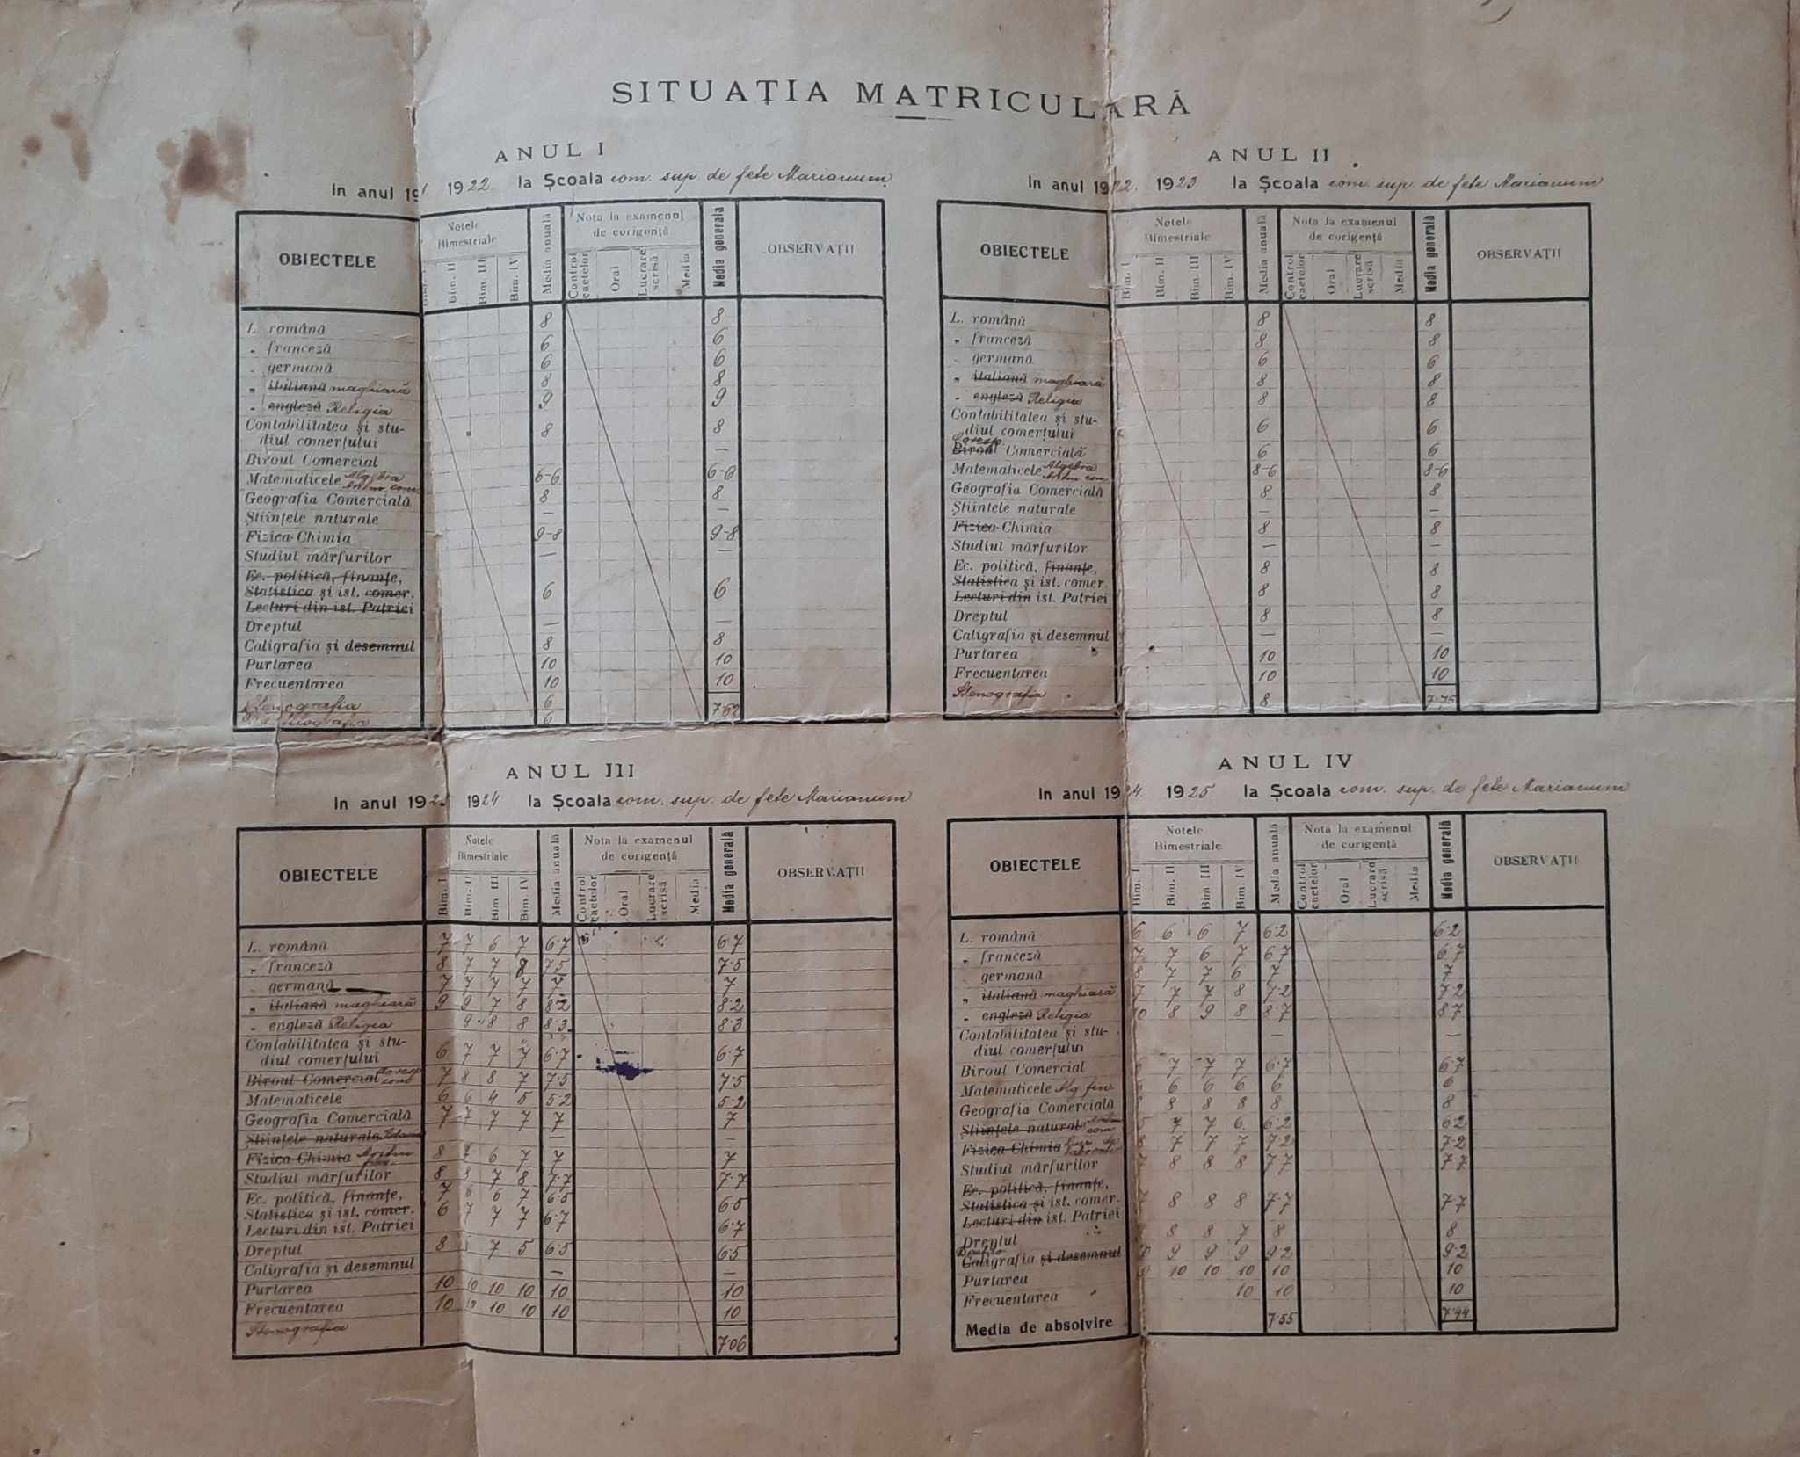 SITUAȚIA MATRICULARĂ
ANUL I
In anul 19 1922 la Școala com. sup. de fete Marianum
OBIECTELE Notele Bimestriale Media anuală Nota la examenul de corigență Media generală OBSERVAȚII
Bim. II Bim. III Bim. IV Control caetelor Oral Lucrare scrisă Media
L. română 8 8
„ franceză 6 6
„ germană 6 6
„ italiană maghiară 8 8
„ engleză Religia 9 9
Contabilitatea și stu-
diul comerțului 8 8
Biroul Comercial —
Matematicele Algebra 6-6 6-6
Geografia Comercială 8 8
Științele naturale — —
Fizica-Chimia 9-8 9-8
Studiul mărfurilor — —
Ec. politică, finanțe,
Statistica și ist. comer. 6 6
Lecturi din ist. Patriei
Dreptul — —
Caligrafia și desemnul 8 8
Purtarea 10 10
Frecuentarea 10 10
Stenografia 6 7·62
6
ANUL II
In anul 1922. 1923 la Școala com. sup. de fete Marianum
OBIECTELE Notele Bimestriale Media anuală Nota la examenul de corigență Media generală OBSERVAȚII
Bim. I Bim. II Bim. III Bim. IV Control caetelor Oral Lucrare scrisă Media
L. română 8 8
„ franceză 8 8
„ germană 6 6
„ italiană maghiară 8 8
„ engleză Religia 8 8
Contabilitatea și stu-
diul comerțului 6 6
Coresp.
Biroul Comercială 6 6
Matematicele Algebra 8-6 8-6
Geografia Comercială 8 8
Științele naturale — —
Fizica-Chimia 8 8
Studiul mărfurilor — —
Ec. politică, finanțe, 8 8
Statistica și ist. comer.
Lecturi din ist. Patriei 8 8
Dreptul 8 8
Caligrafia și desemnul — —
Purtarea 10 10
Frecuentarea 10 10
Stenografia 8 7·75
ANUL III
In anul 192 1924 la Școala com. sup. de fete Marianum
OBIECTELE Notele Bimestriale Media anuală Nota la examenul de corigență Media generală OBSERVAȚII
Bim. I Bim. I Bim. III Bim. IV Control caetelor Oral Lucrare scrisă Media
L. română 7 7 6 7 6·7 6·7
„ franceză 8 7 7 8 7·5 7·5
„ germană 7 7 7 7 7 7
„ italiană maghiară 9 9 7 8 8·2 8·2
„ engleză Religia 9 8 8 8·3 8·3
Contabilitatea și stu-
diul comerțului 6 7 7 7 6·7 6·7
Biroul Comercial 7 8 8 7 7·5 7·5
Matematicele 6 6 4 5 5·2 5·2
Geografia Comercială 7 7 7 7 7 7
Științele naturale — —
Fizica-Chimia 8 7 6 7 7 7
Studiul mărfurilor 8 8 7 8 7·7 7·7
Ec. politică, finanțe, 7 6 6 7 6·5 6·5
Statistica și ist. comer.
Lecturi din ist. Patriei 6 7 7 7 6·7 6·7
Dreptul 8 7 5 6·5 6·5
Caligrafia și desemnul — —
Purtarea 10 10 10 10 10 10
Frecuentarea 10 10 10 10 10 10
Stenografia 7·06
ANUL IV
In anul 1924. 1925 la Școala com. sup. de fete Marianum
OBIECTELE Notele Bimestriale Media anuală Nota la examenul de corigență Media generală OBSERVAȚII
Bim. I Bim. II Bim. III Bim. IV Control caetelor Oral Lucrare scrisă Media
L. română 6 6 6 7 6·2 6·2
„ franceză 7 7 6 7 6·7 6·7
germană 8 7 7 6 7 7
„ italiană maghiară 7 7 7 8 7·2 7·2
„ engleză Religia 10 8 9 8 8·7 8·7
Contabilitatea și stu-
diul comerțului — —
Biroul Comercial 7 7 7 6·7 6·7
Matematicele Alg. fin. 6 6 6 6 6
Geografia Comercială 8 8 8 8 8
Științele natural 7 7 6 6·2 6·2
Fizica-Chimia 8 7 7 7 7·2 7·2
Studiul mărfurilor 8 8 8 7·7 7·7
Ec. politică, finanțe,
Statistica și ist. comer. 8 8 8 7·7 7·7
Lecturi din ist. Patriei
Dreptul 8 8 7 8 8
Caligrafia și desemnul 9 9 9 9·2 9·2
Purtarea 10 10 10 10 10
Frecuentarea 10 10 10
Media de absolvire 7·55 7·44